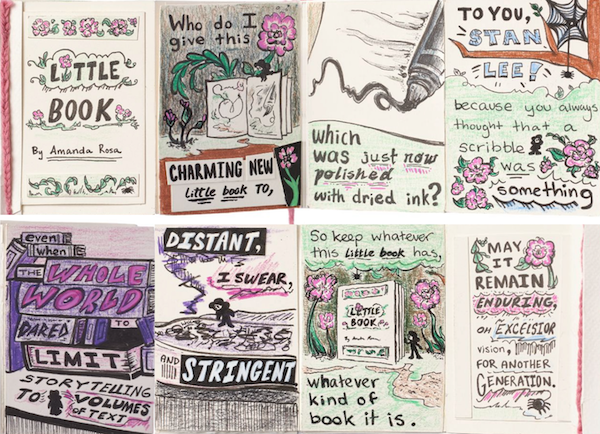 LITTLE
BOOK
By Amanda Rosa
Who do I
give this
CHARMING NEW
Little book TO,
which
was just now
polished
with dried ink?
TO YOU,
STAN
LEE!
because you always
thought that a
scribble
was
something
even
when
THE WHOLE
WORLD
DARED TO
LIMIT
STORYTELLING
TO VOLUMES
OF TEXT
DISTANT,
I SWEAR,
AND
STRINGENT
So keep whatever
this Little book has,
LITTLE
BOOK
By Amanda Rosa
whatever
kind of
book it is.
MAY
IT
REMAIN
ENDURING,
an EXCELSIOR
vision,
FOR ANOTHER
GENERATION.